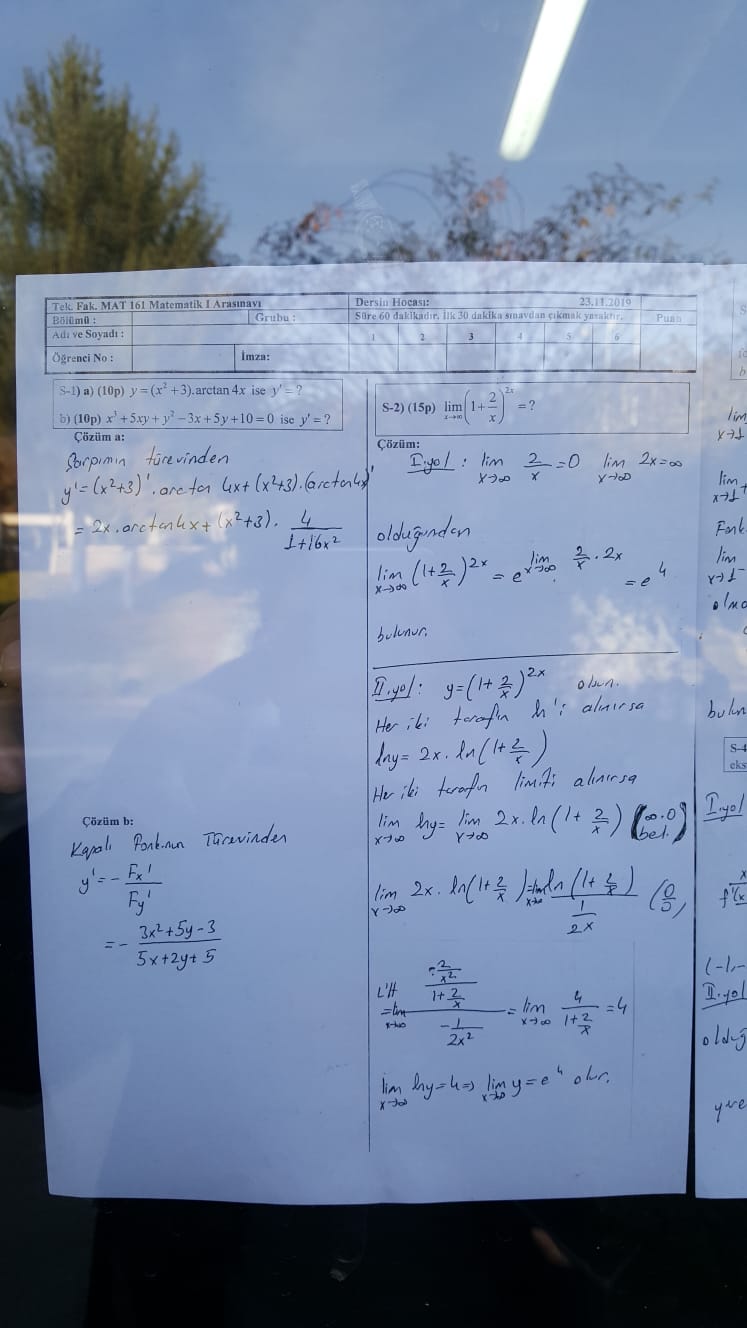 Tek. Fak. MAT 161 Matematik I Arasınavı
Dersin Hocası: 23.11.2019
Bölümü : Grubu :
Süre 60 dakikadır. İlk 30 dakika sınavdan çıkmak yasaktır. Puan
Adı ve Soyadı :
1 2 3 4 5 6
Öğrenci No : İmza:
S-1) a) (10p) y = (x² + 3).arctan 4x ise y' = ?
b) (10p) x³ + 5xy + y² − 3x + 5y + 10 = 0 ise y' = ?
Çözüm a:
Çarpımın türevinden
y' = (x²+3)'.arctan 4x + (x²+3).(arctan4x)'
= 2x.arctan4x + (x²+3). 4/(1+16x²)
Çözüm b:
Kapalı Fonk.nun Türevinden
y' = − Fx'/Fy'
= − (3x²+5y−3)/(5x+2y+5)
S-2) (15p) lim x→∞ (1 + 2/x)^2x = ?
Çözüm:
I.yol : lim x→∞ 2/x = 0 lim x→∞ 2x = ∞
olduğundan
lim x→∞ (1+2/x)^2x = e^lim x→∞ 2/x . 2x = e^4
bulunur.
II.yol : y = (1+2/x)^2x olsun.
Her iki tarafın ln'i alınırsa
lny = 2x.ln(1+2/x)
Her iki tarafın limiti alınırsa
lim x→∞ lny = lim x→∞ 2x.ln(1+2/x) (∞.0 bel.)
lim x→∞ 2x.ln(1+2/x) = lim x→∞ ln(1+2/x)/(1/2x) (0/0)
L'H = lim x→∞ ((-2/x²)/(1+2/x))/(-1/2x²) = lim x→∞ 4/(1+2/x) = 4
lim x→∞ lny = 4 => lim x→∞ y = e^4 olur.
lim
x→1
lim
x→1
Fonk.
lim
x→1⁻
bulun
S-4
eks
I.yol
(-1,-
II.yol
olduğ